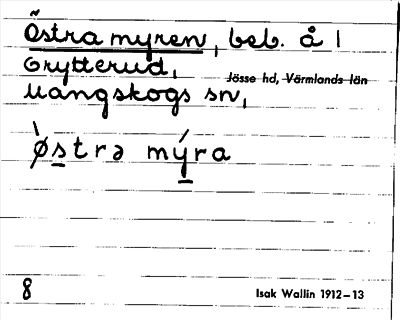 Östra myren, beb. å 1
Grytterud,
Jösse hd, Värmlands län
Mangskogs sn,
ø̀strə mýra
8
Isak Wallin 1912–13